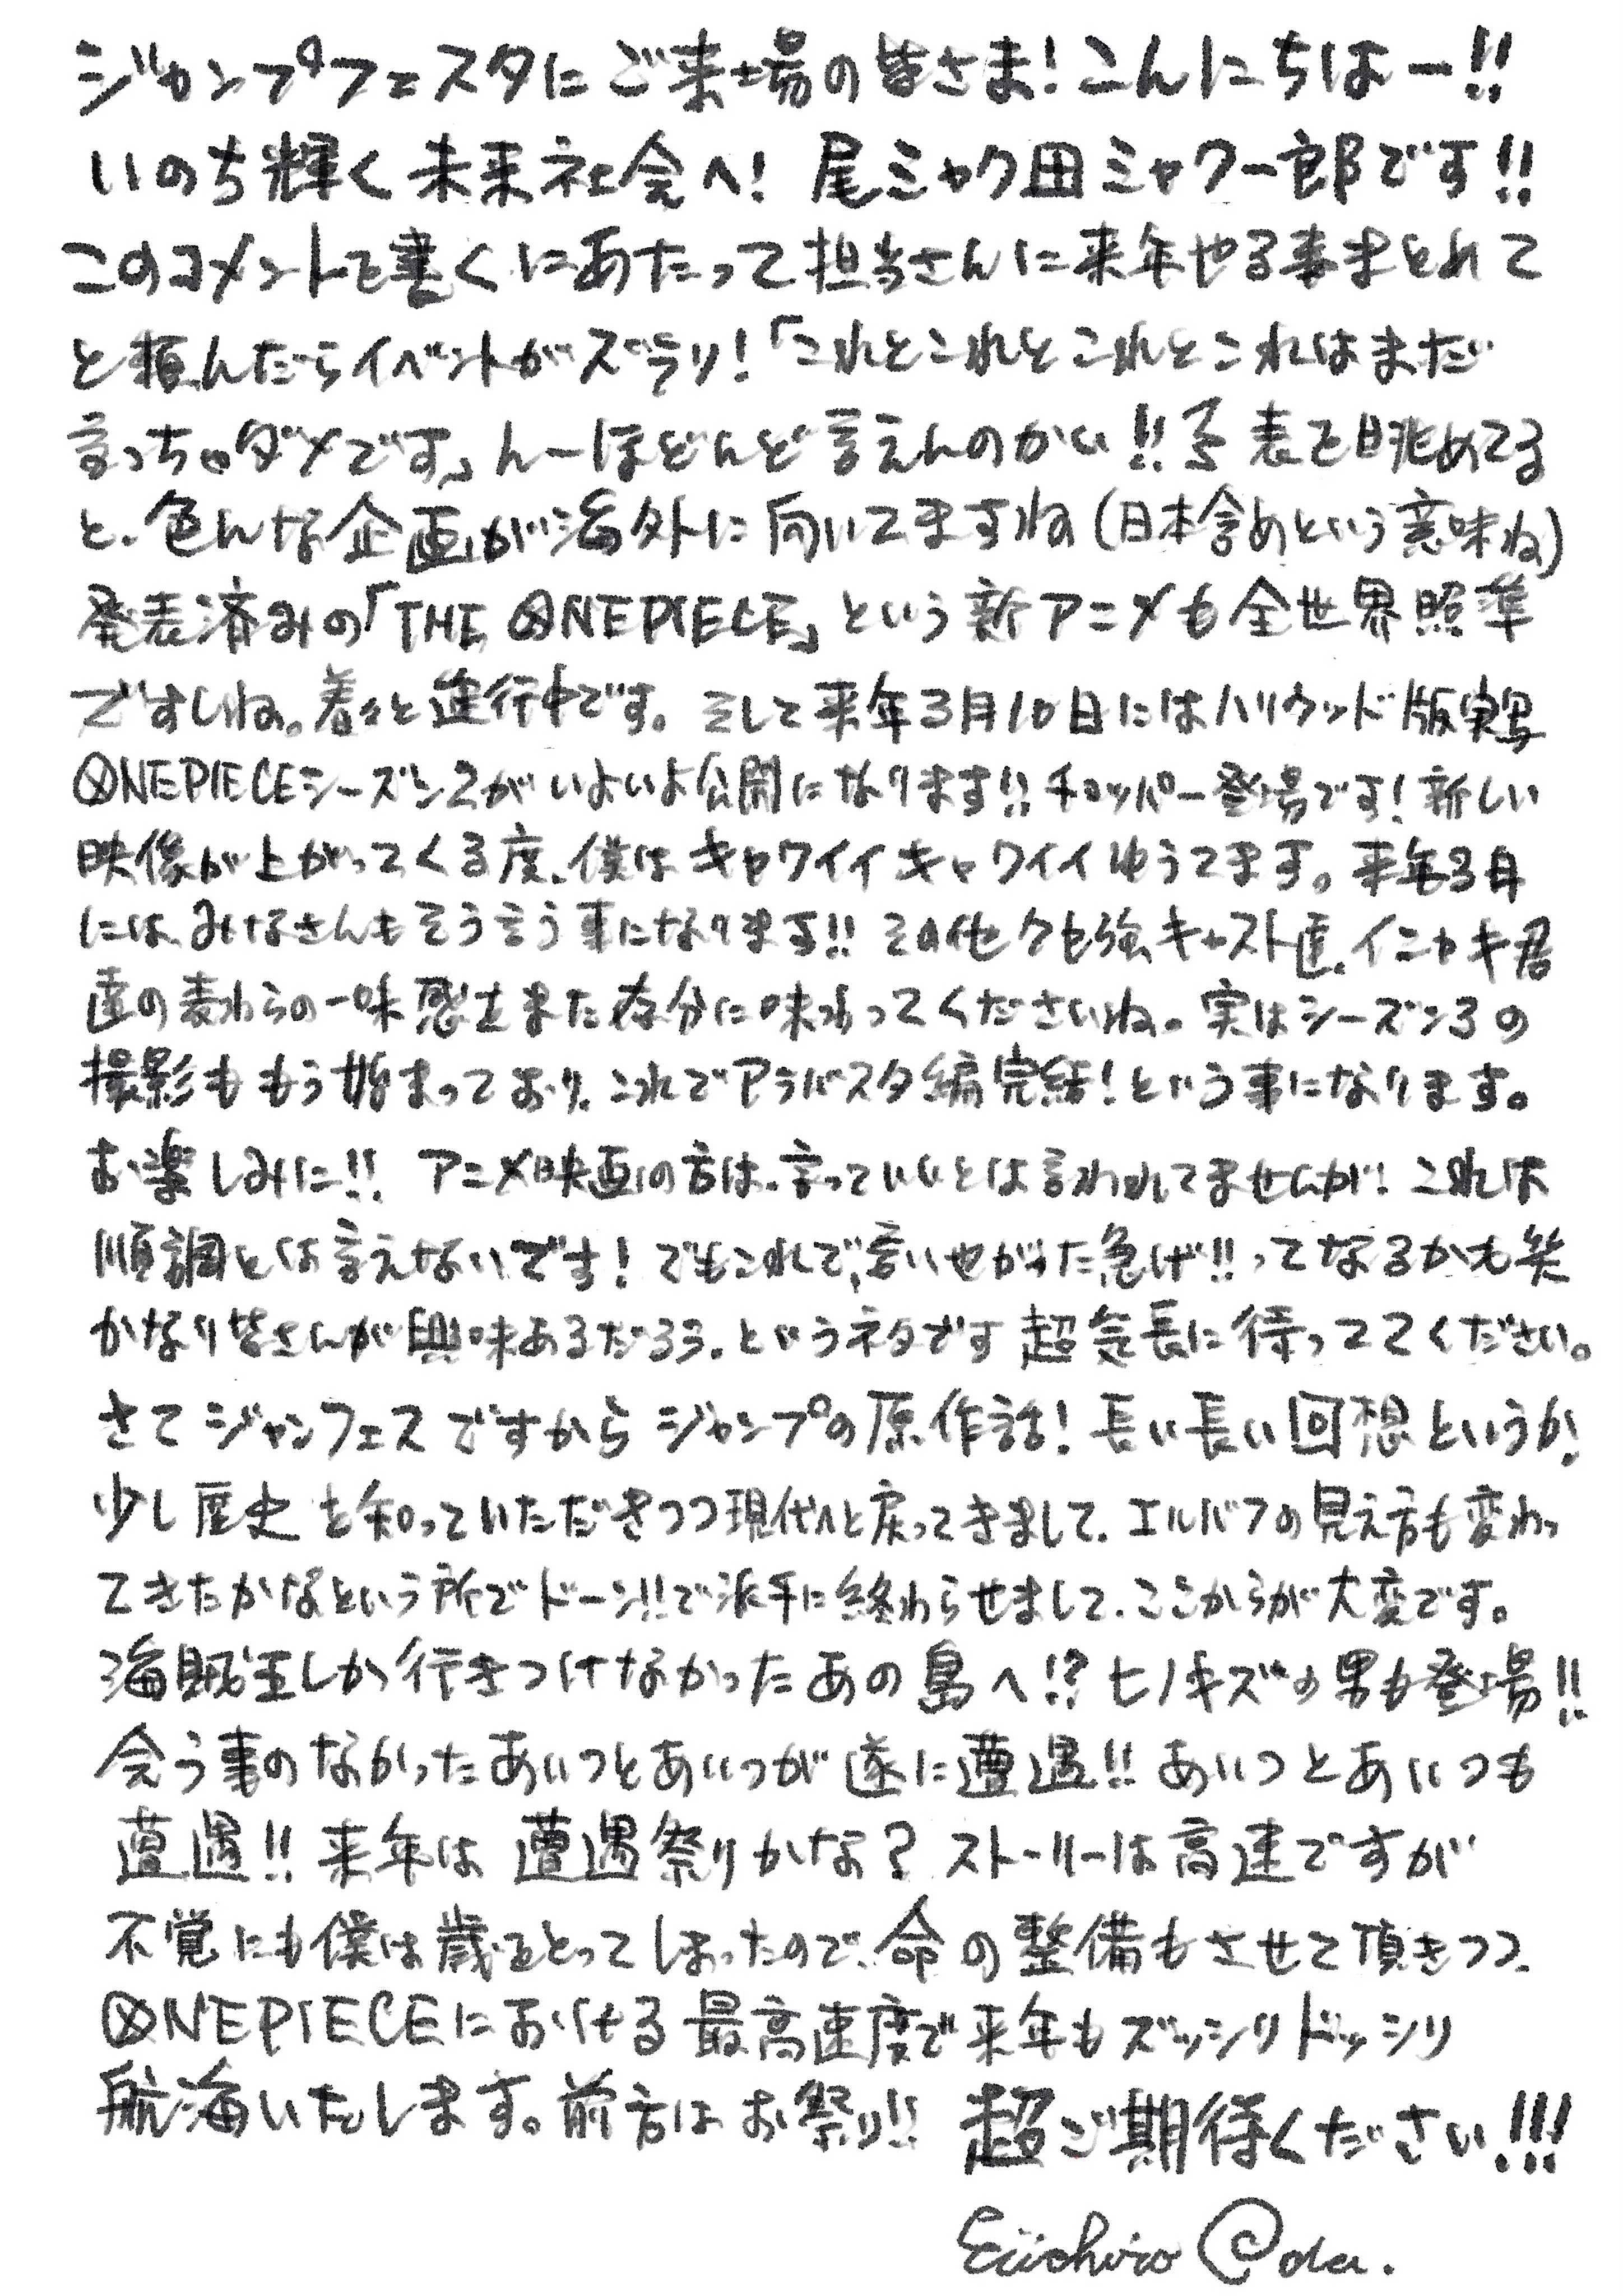 ジャンプフェスタにご来場の皆さま！こんにちはー!!
いのち輝く未来社会へ！ 尾ミャク田ミャク一郎です!!
このコメントを書くにあたって担当さんに来年やる事まとめて
と頼んだらイベントがズラリ！「これとこれとこれとこれはまだ
言っちゃダメです」んーほとんど言えんのかい!! 表を眺めてる
と、色んな企画が海外に向いてますね(日本含めという意味ね)
発表済みの「THE ONE PIECE」という新アニメも全世界照準
ですしね。着々と進行中です。そして来年3月10日にはハリウッド版実写
ONE PIECEシーズン2がいよいよ公開になります!! チョッパー登場です！新しい
映像が上がってくる度、僕はキャワイイキャワイイゆうてます。来年3月
には、みなさんもそう言う事になります!! その他クセ強キャスト達、イニャキ君
達の麦わらの一味感をまた存分に味わってくださいね。実はシーズン3の
撮影ももう始まっており、これでアラバスタ編完結！という事になります。
お楽しみに!! アニメ映画の方は、言っていいとは言われてませんが！これは
順調とは言えないです！でもこれで、言いやがった急げ!!ってなるかも笑
かなり皆さんが興味あるだろう、というネタです 超気長に待っててください。
さてジャンフェスですからジャンプの原作話！長い長い回想というか！
少し歴史を知っていただきつつ現代へと戻ってきまして、エルバフの見え方も変わっ
てきたかなという所でドーン!!で派手に終わらせまして、ここからが大変です。
海賊王しか行きつけなかったあの島へ!? ヒノキズの男も登場!!
会う事のなかったあいつとあいつが遂に遭遇!! あいつとあいつも
遭遇!! 来年は遭遇祭りかな？ ストーリーは高速ですが
不覚にも僕は歳をとってしまったので、命の整備もさせて頂きつつ、
ONE PIECEにおける最高速度で来年もズッシリドッシリ
航海いたします。前方はお祭り!! 超ご期待ください!!!
Eiichiro Oda.